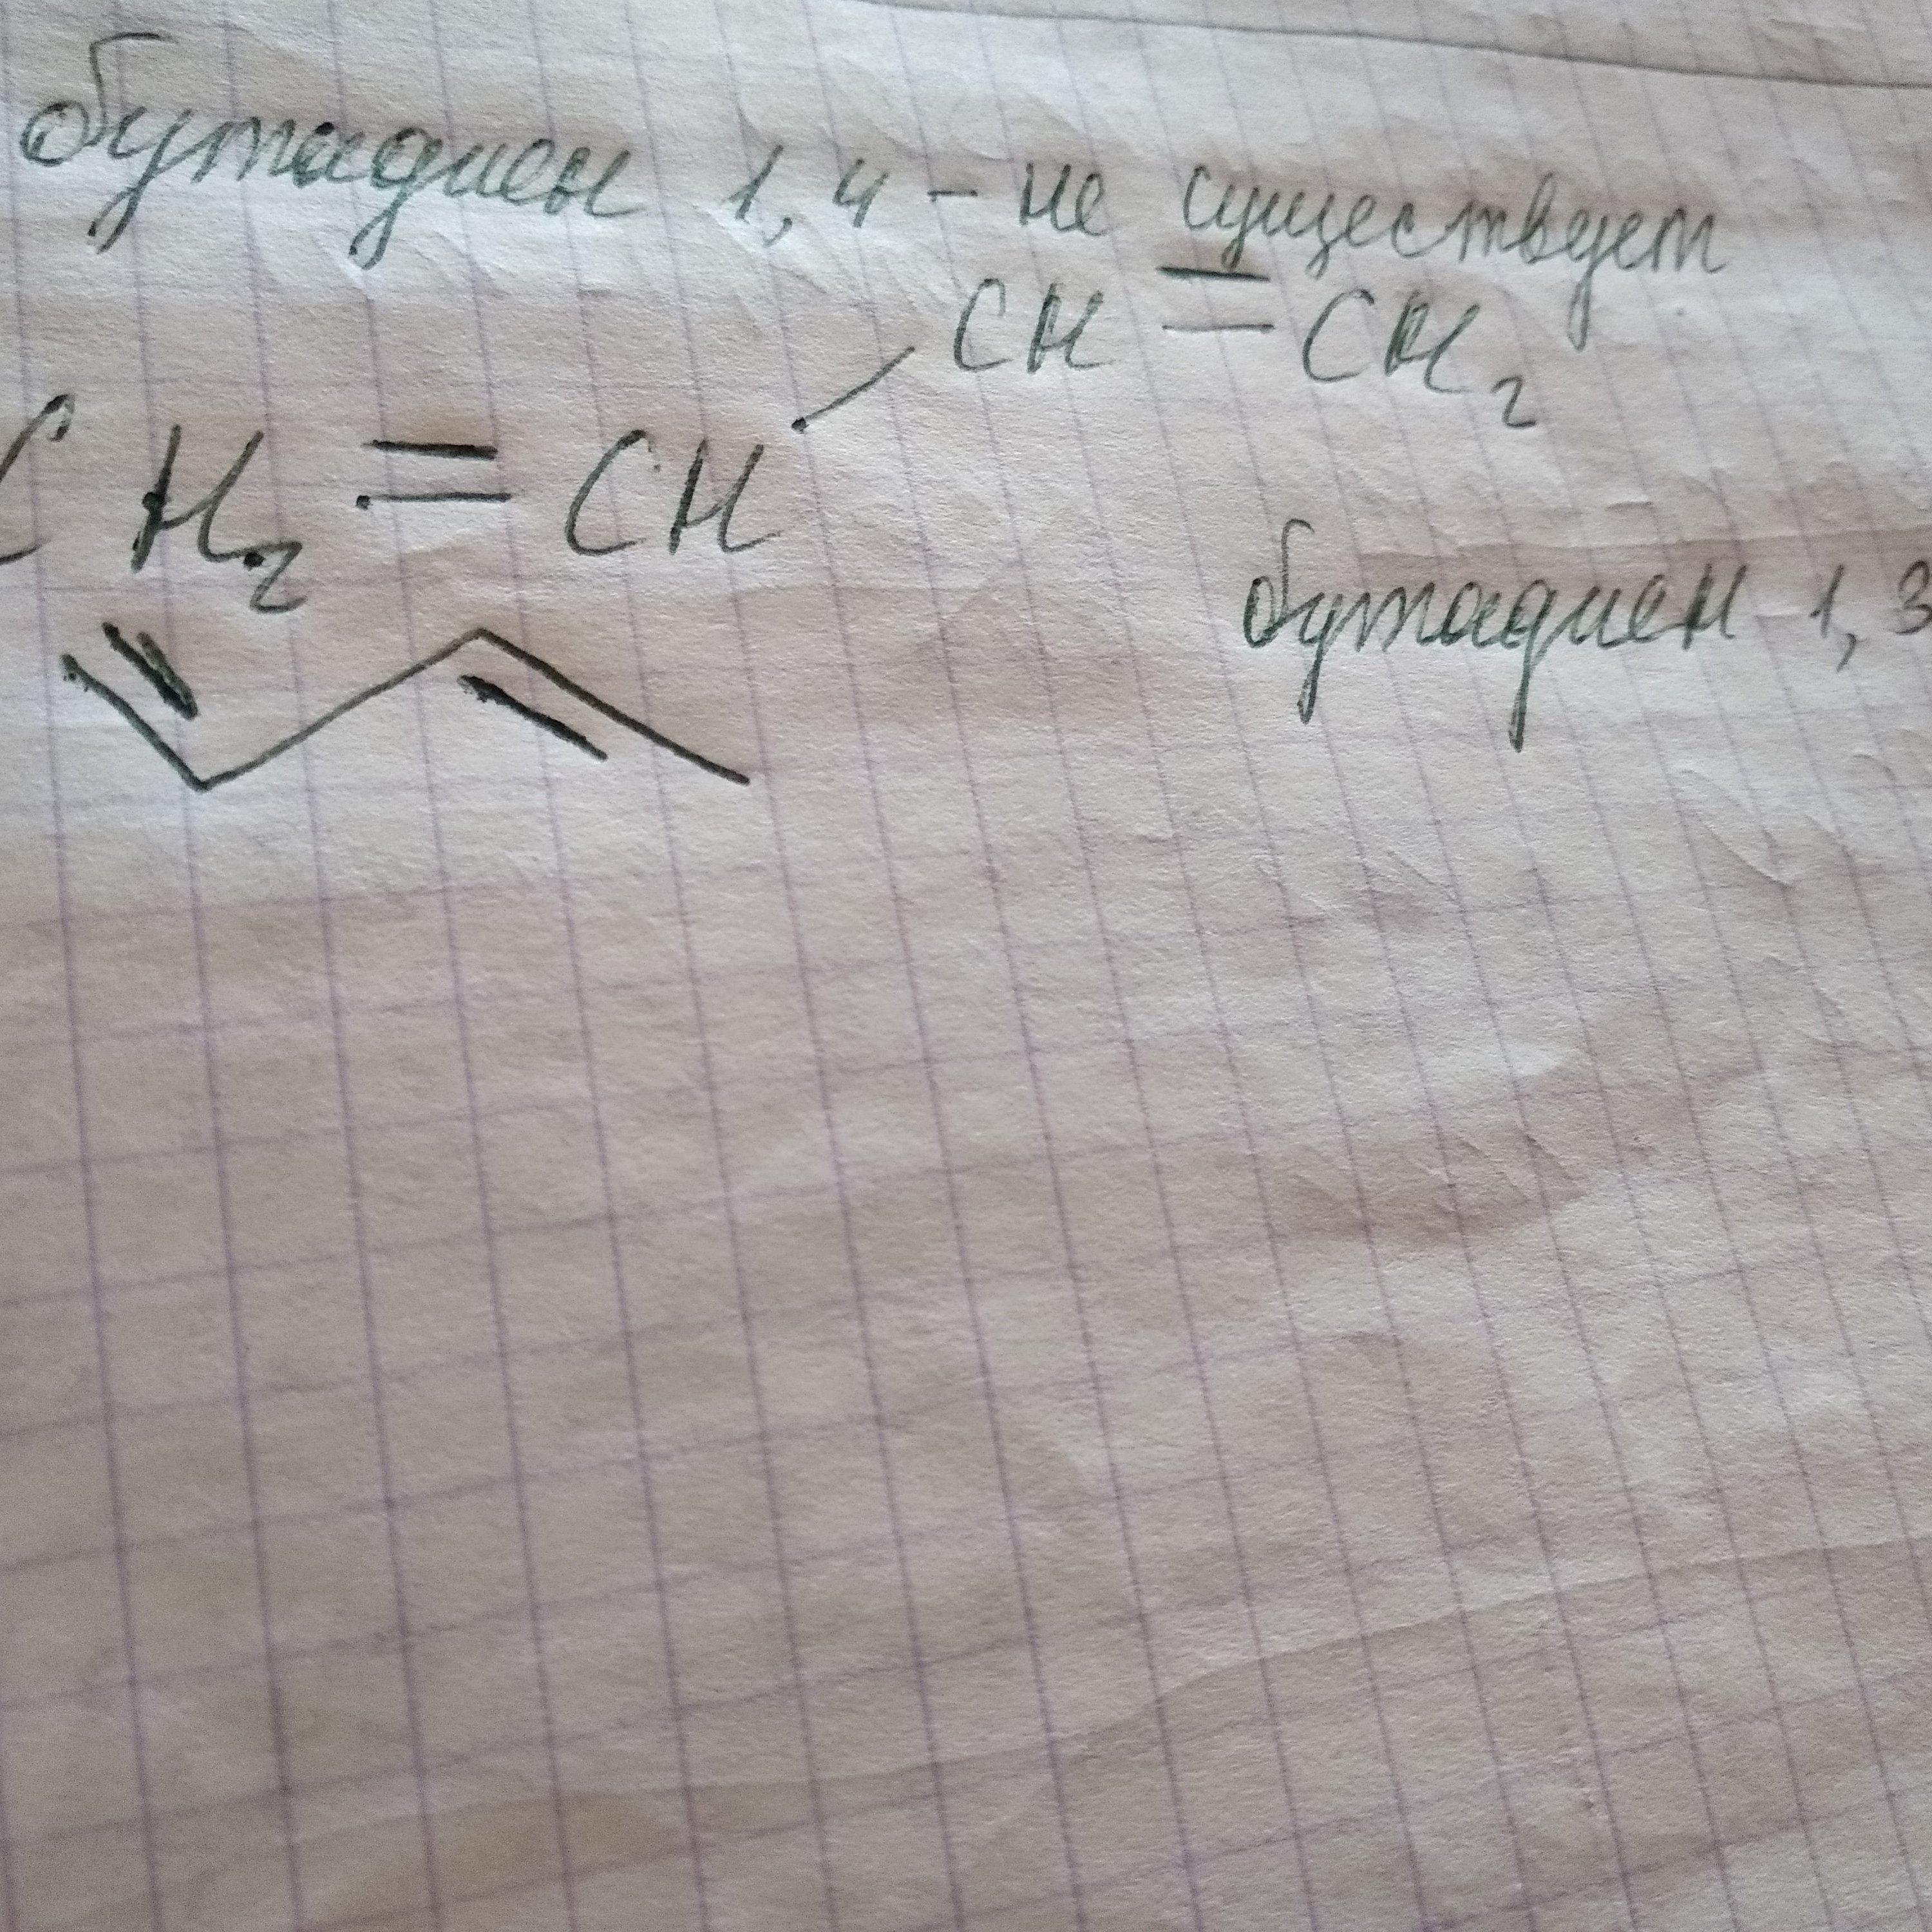 бутадиен 1,4 - не существует
CH = CH2
CH2 = CH
бутадиен 1,3